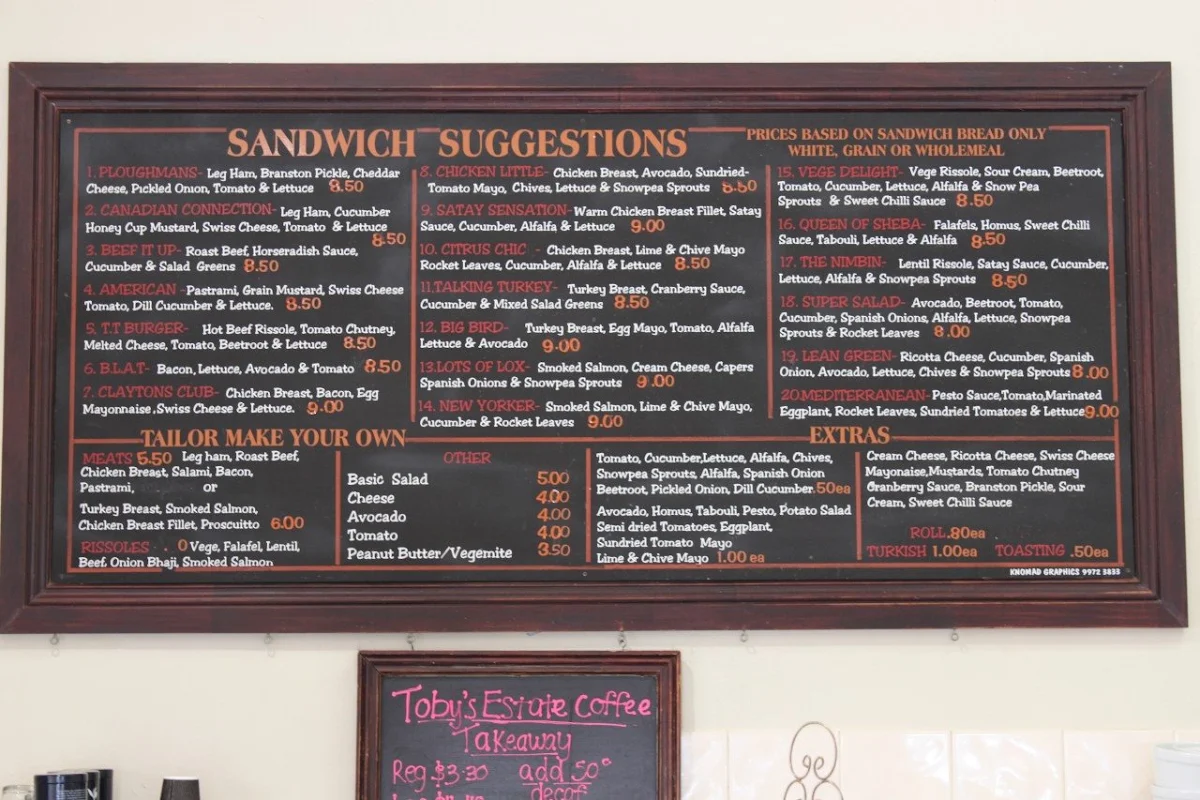 SANDWICH SUGGESTIONS
PRICES BASED ON SANDWICH BREAD ONLY
WHITE, GRAIN OR WHOLEMEAL
1. PLOUGHMANS- Leg Ham, Branston Pickle, Cheddar
Cheese, Pickled Onion, Tomato & Lettuce 8.50
2. CANADIAN CONNECTION- Leg Ham, Cucumber
Honey Cup Mustard, Swiss Cheese, Tomato & Lettuce
8.50
3. BEEF IT UP- Roast Beef, Horseradish Sauce,
Cucumber & Salad Greens 8.50
4. AMERICAN - Pastrami, Grain Mustard, Swiss Cheese
Tomato, Dill Cucumber & Lettuce. 8.50
5. T.T BURGER- Hot Beef Rissole, Tomato Chutney,
Melted Cheese, Tomato, Beetroot & Lettuce 8.50
6. B.L.A.T- Bacon, Lettuce, Avocado & Tomato 8.50
7. CLAYTONS CLUB- Chicken Breast, Bacon, Egg
Mayonnaise, Swiss Cheese & Lettuce. 9.00
8. CHICKEN LITTLE- Chicken Breast, Avocado, Sundried-
Tomato Mayo, Chives, Lettuce & Snowpea Sprouts 8.50
9. SATAY SENSATION- Warm Chicken Breast Fillet, Satay
Sauce, Cucumber, Alfalfa & Lettuce 9.00
10. CITRUS CHIC - Chicken Breast, Lime & Chive Mayo
Rocket Leaves, Cucumber, Alfalfa & Lettuce 8.50
11.TALKING TURKEY- Turkey Breast, Cranberry Sauce,
Cucumber & Mixed Salad Greens 8.50
12. BIG BIRD- Turkey Breast, Egg Mayo, Tomato, Alfalfa
Lettuce & Avocado 9.00
13.LOTS OF LOX- Smoked Salmon, Cream Cheese, Capers
Spanish Onions & Snowpea Sprouts 9.00
14. NEW YORKER- Smoked Salmon, Lime & Chive Mayo,
Cucumber & Rocket Leaves 9.00
15. VEGE DELIGHT- Vege Rissole, Sour Cream, Beetroot,
Tomato, Cucumber, Lettuce, Alfalfa & Snow Pea
Sprouts & Sweet Chilli Sauce 8.50
16. QUEEN OF SHEBA- Falafels, Homus, Sweet Chilli
Sauce, Tabouli, Lettuce & Alfalfa 8.50
17. THE NIMBIN- Lentil Rissole, Satay Sauce, Cucumber,
Lettuce, Alfalfa & Snowpea Sprouts 8.50
18. SUPER SALAD- Avocado, Beetroot, Tomato,
Cucumber, Spanish Onions, Alfalfa, Lettuce, Snowpea
Sprouts & Rocket Leaves 8.00
19. LEAN GREEN- Ricotta Cheese, Cucumber, Spanish
Onion, Avocado, Lettuce, Chives & Snowpea Sprouts 8.00
20.MEDITERRANEAN- Pesto Sauce,Tomato,Marinated
Eggplant, Rocket Leaves, Sundried Tomatoes & Lettuce 9.00
TAILOR MAKE YOUR OWN
MEATS 5.50 Leg ham, Roast Beef,
Chicken Breast, Salami, Bacon,
Pastrami, or
Turkey Breast, Smoked Salmon,
Chicken Breast Fillet, Proscuitto 6.00
RISSOLES . 0 Vege, Falafel, Lentil,
Beef, Onion Bhaji, Smoked Salmon
OTHER
Basic Salad 5.00
Cheese 4.00
Avocado 4.00
Tomato 4.00
Peanut Butter/Vegemite 3.50
EXTRAS
Tomato, Cucumber,Lettuce, Alfalfa, Chives,
Snowpea Sprouts, Alfalfa, Spanish Onion
Beetroot, Pickled Onion, Dill Cucumber .50ea
Avocado, Homus, Tabouli, Pesto, Potato Salad
Semi dried Tomatoes, Eggplant,
Sundried Tomato Mayo
Lime & Chive Mayo 1.00 ea
Cream Cheese, Ricotta Cheese, Swiss Cheese
Mayonaise,Mustards, Tomato Chutney
Cranberry Sauce, Branston Pickle, Sour
Cream, Sweet Chilli Sauce
ROLL .80ea
TURKISH 1.00ea TOASTING .50ea
KNOMAD GRAPHICS 9972 3833
Toby's Estate Coffee
Takeaway
Reg $3.30 add 50c
decaf